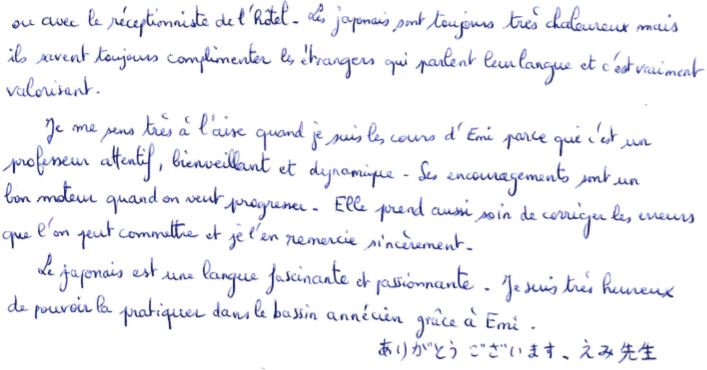 ou avec le réceptionniste de l'hôtel. Les japonais sont toujours très chaleureux mais
ils savent toujours complimenter les étrangers qui parlent leur langue et c'est vraiment
valorisant.
Je me sens très à l'aise quand je suis les cours d'Emi parce que c'est un
professeur attentif, bienveillant et dynamique. Ses encouragements sont un
bon moteur quand on veut progresser. Elle prend aussi soin de corriger les erreurs
que l'on peut commettre et je l'en remercie sincèrement.
Le japonais est une langue fascinante et passionnante. Je suis très heureux
de pouvoir la pratiquer dans le bassin annécien grâce à Emi.
ありがとうございます、えみ先生